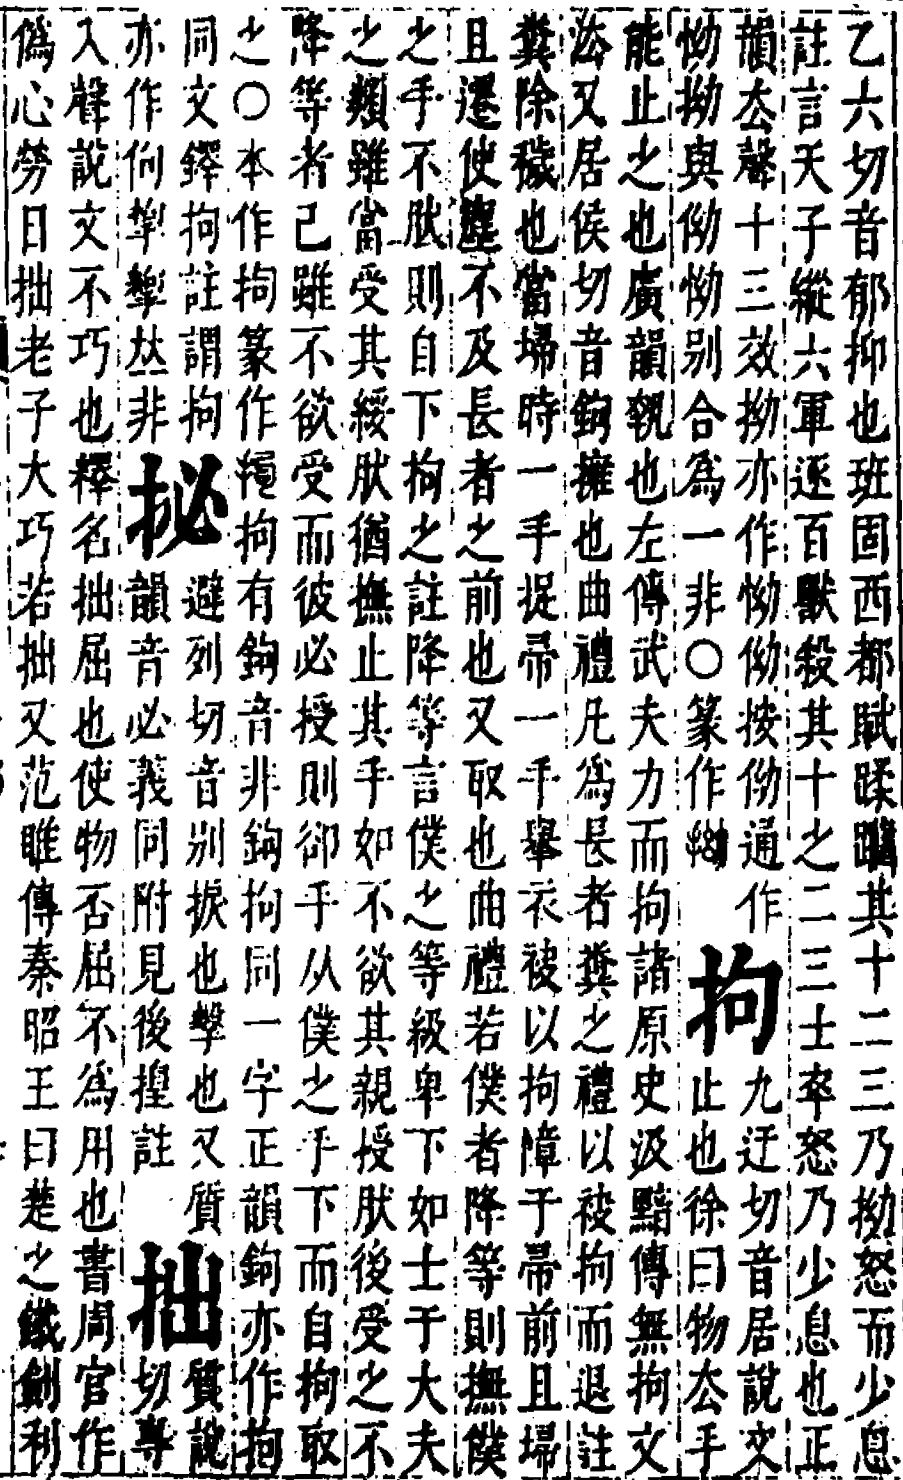 乙六切音郁抑也班固西都賦蹂躪其十二三乃拗怒而少息
註言天子縱六軍逐百獸殺其十之二三士卒怒乃少息也正
韻去聲十三效拗亦作怮㑃按㑃通作
怮拗與㑃怮别合為一非○篆作
拘
九迂切音居說文
止也徐曰物去手
能止之也廣韻執也左傳武夫力而拘諸原史汲黯傳無拘文
法又居侯切音鉤擁也曲禮凡為長者糞之禮以袂拘而退註
糞除穢也當埽時一手捉帚一手舉衣袂以拘障于帚前且埽
且遷使塵不及長者之前也又取也曲禮若僕者降等則撫僕
之手不肰則自下拘之註降等言僕之等級卑下如士于大夫
之類雖當受其綏肰猶撫止其手如不欲其親授肰後受之不
降等者己雖不欲受而彼必授則卻手从僕之手下而自拘取
之○本作拘篆作𢳎拘有鉤音非鉤拘同一字正韻鉤亦作拘
同文鐸拘註謂拘
亦作佝㨌𢵧𠀤非
㧙
避列切音别捩也擊也又質
韻音必義同附見後揘註
拙
質說
切專
入聲說文不巧也釋名拙屈也使物否屈不為用也書周官作
偽心勞日拙老子大巧若拙又范雎傳秦昭王曰楚之鐵劍利